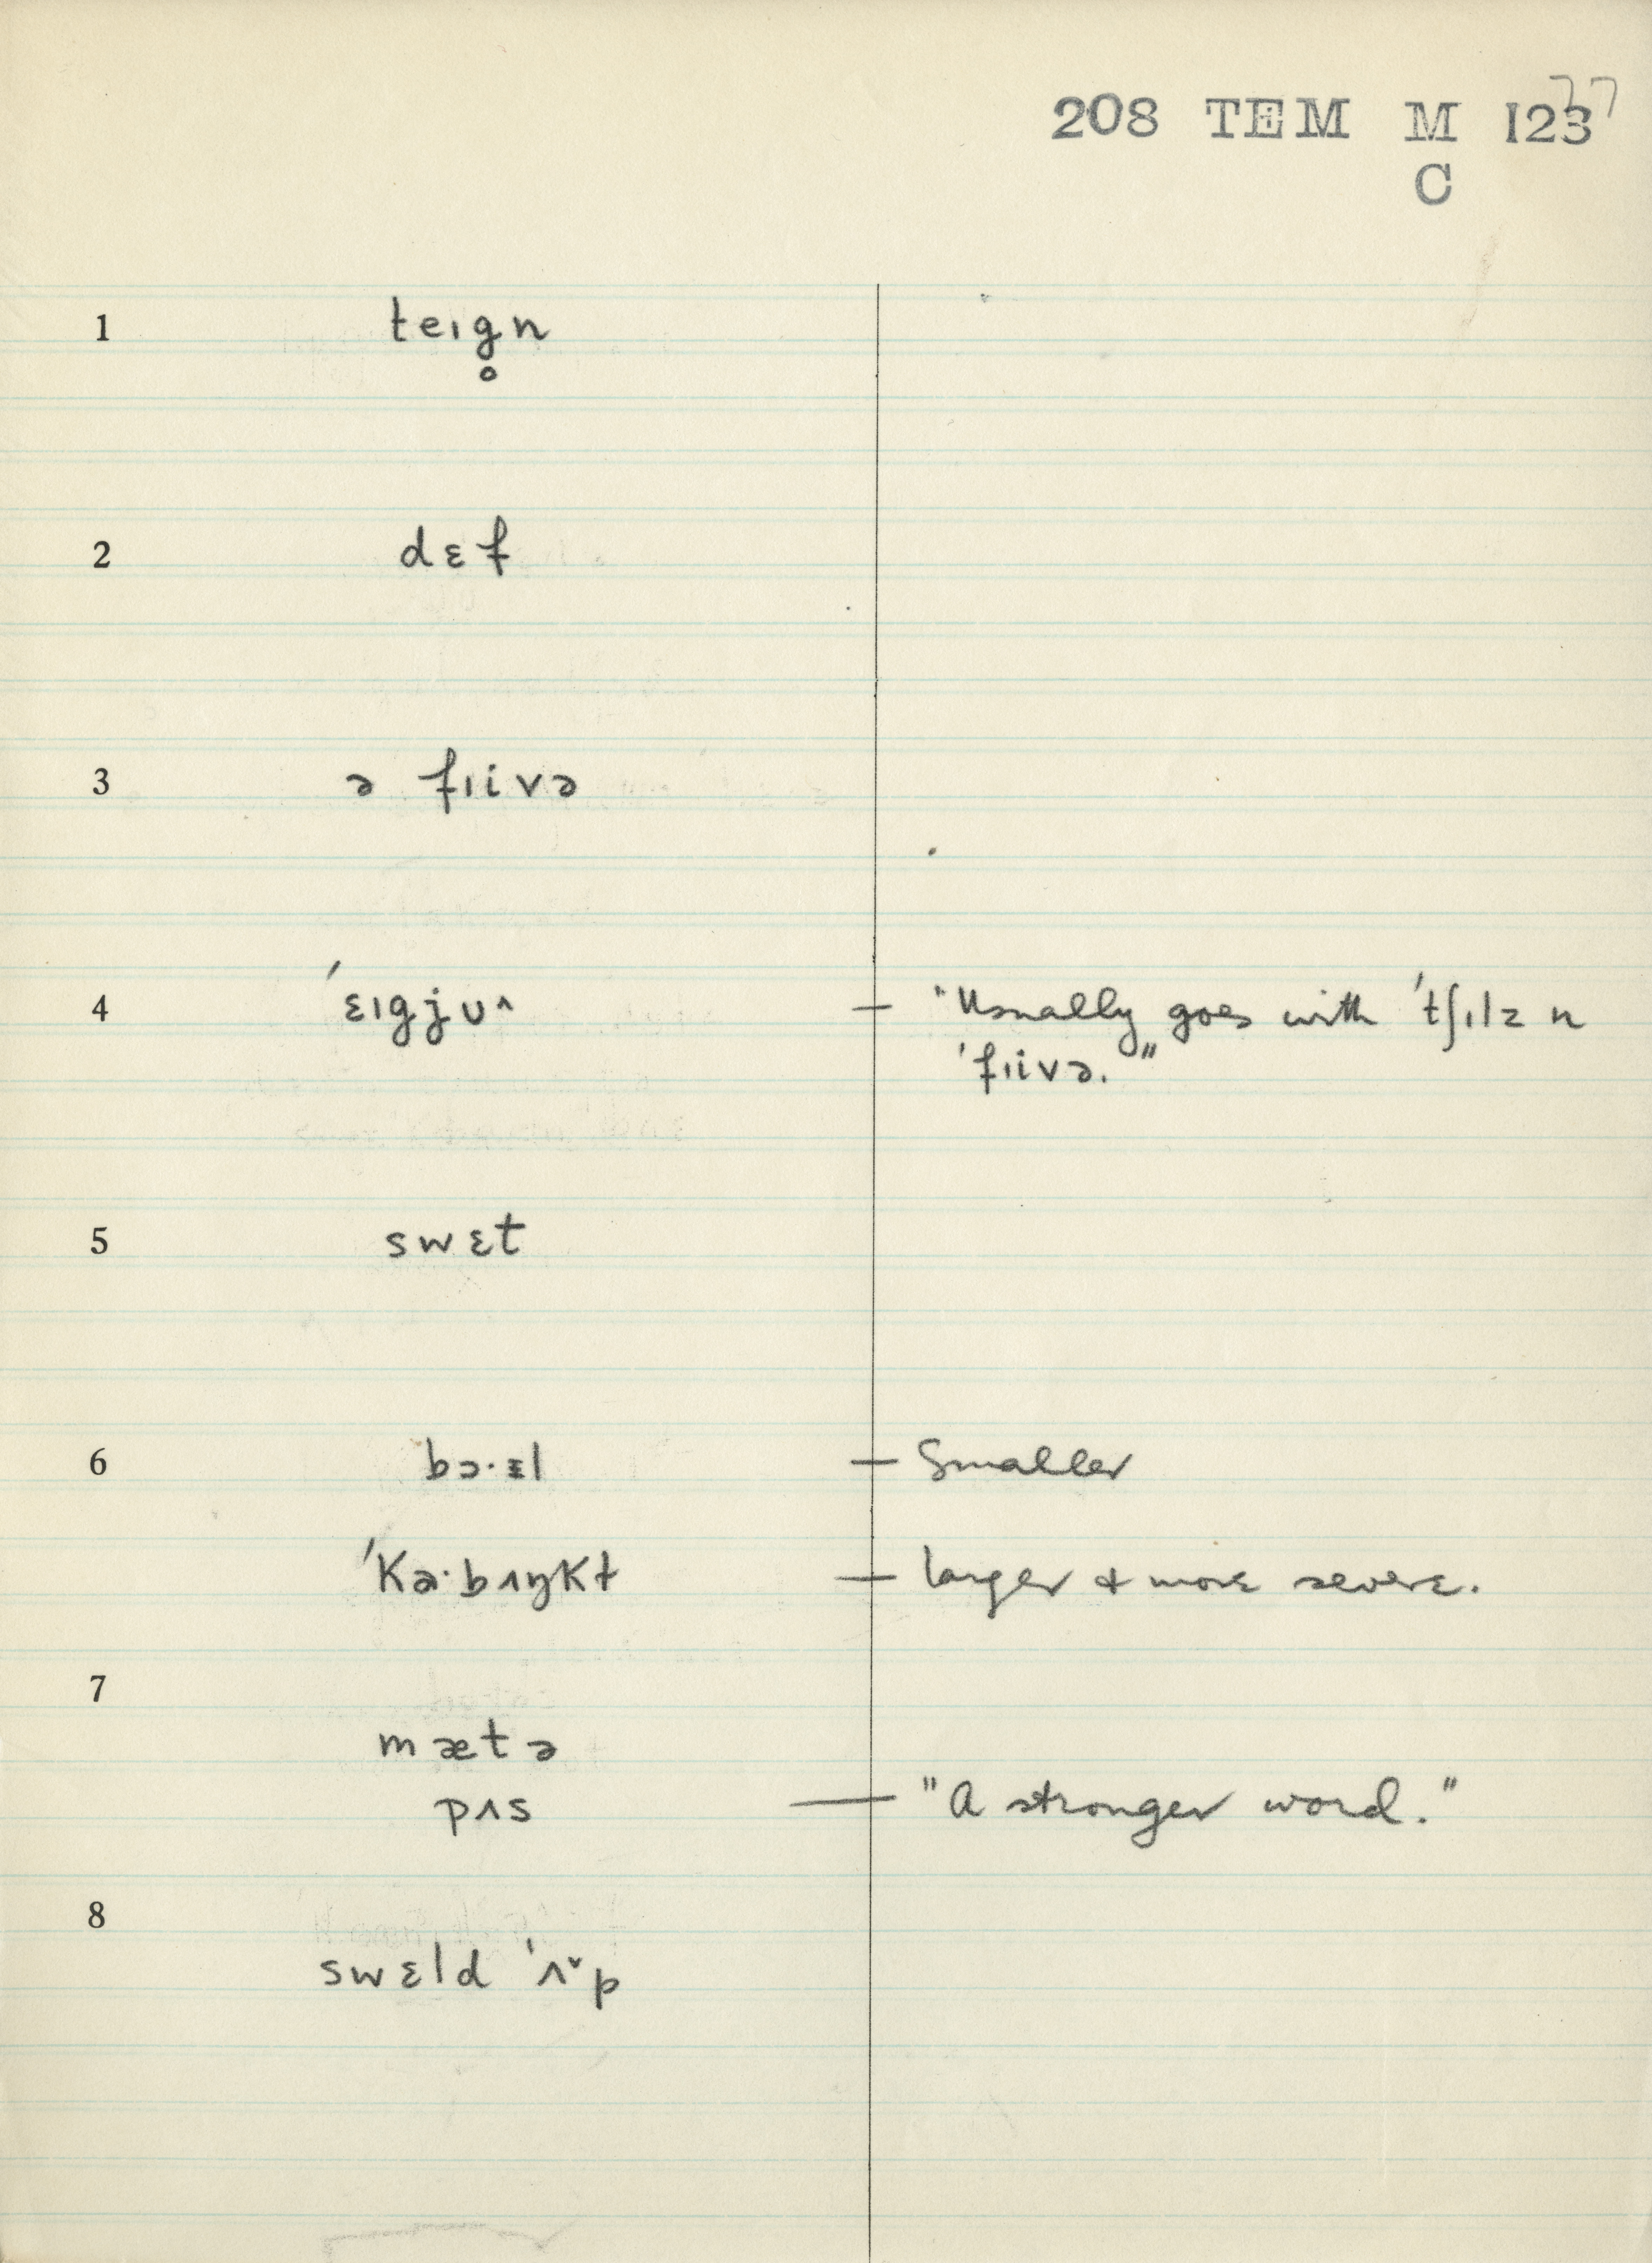 208 TEM M 123 77
C
1 teɪg̥n
2 dɛf
3 ə fɪivə
4 ˈɛɪgjʊ^ — "Usually goes with ˈtʃɪlz n
ˈfɪivə."
5 swɛt
6 bɔ·ɛl — Smaller
ˈKɑ·bʌŋKɫ — larger & more severe.
7
mætə
pʌs — "A stronger word."
8
swɛld ˈʌˇp